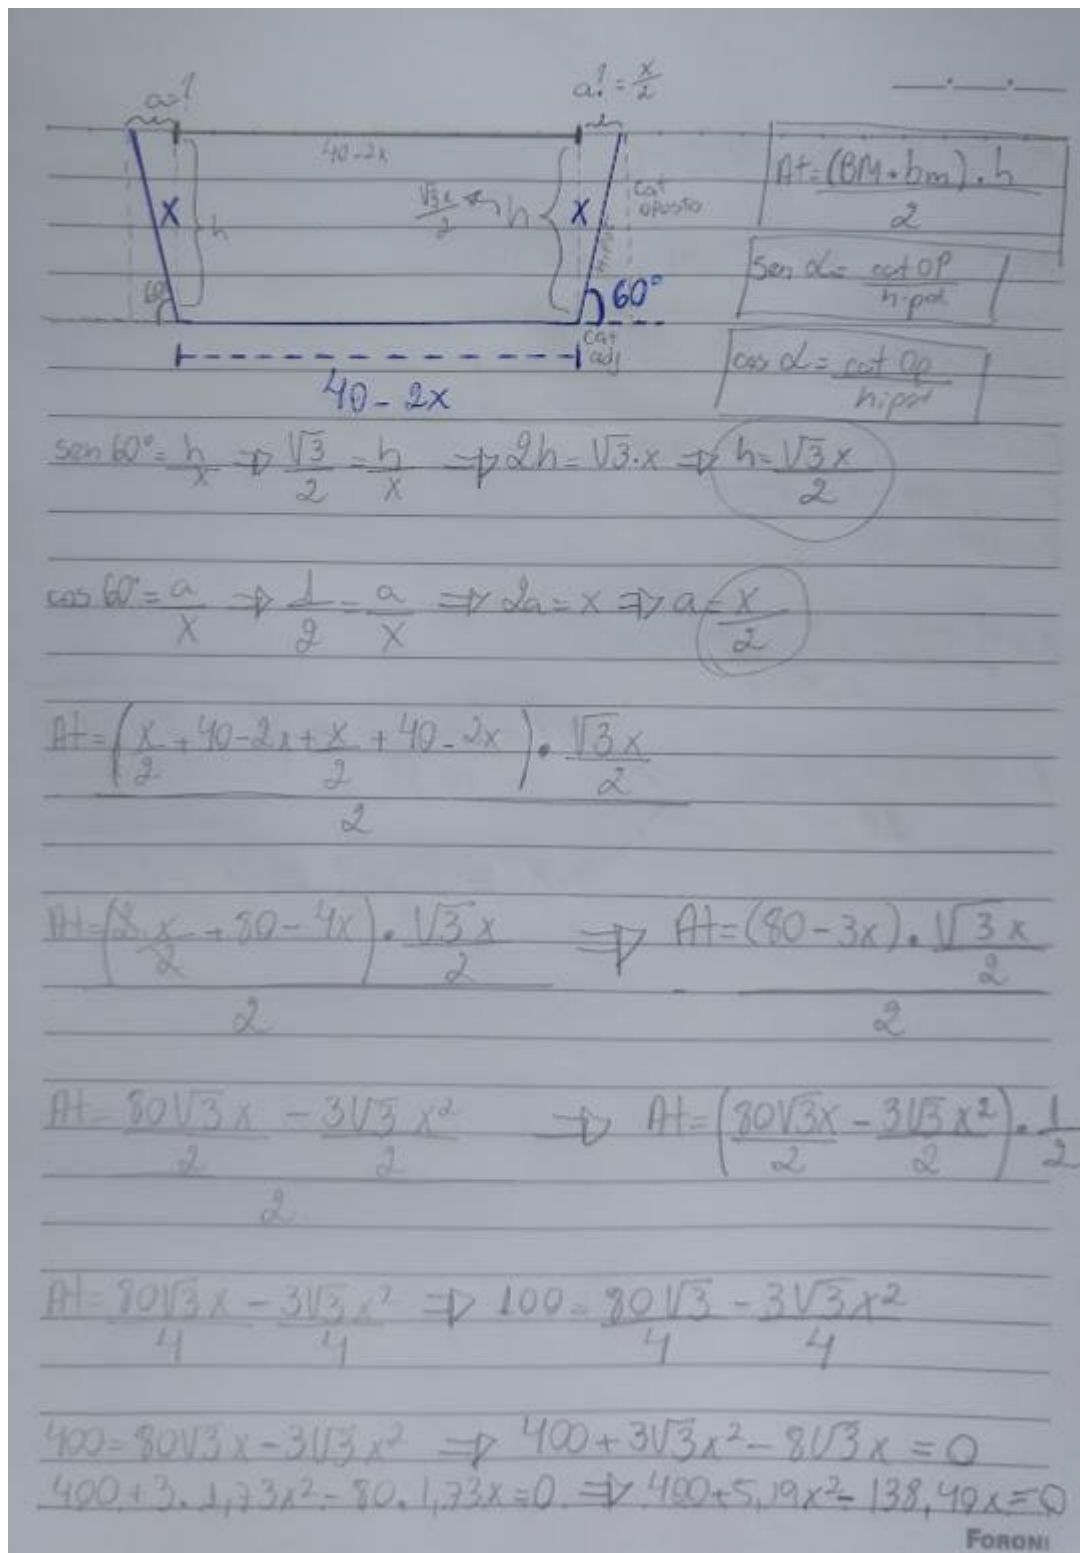 a=?
a? = x/2
40-2x
x
h
60°
√3x/2
h
x
hipot
cat oposto
60°
cat adj
40-2x
At=(BM+bm).h/2
sen α= cat OP/hipot
cos α= cat Op/hipot
sen 60°= h/x ⇒ √3/2 = h/x ⇒ 2h=√3.x ⇒ h=√3x/2
cos 60°= a/x ⇒ 1/2 = a/x ⇒ 2a=x ⇒ a=x/2
At=(x/2+40-2x+x/2+40-2x).√3x/2/2
At=(2x/2+80-4x).√3x/2/2 ⇒ At=(80-3x).√3x/2/2
At=80√3x/2-3√3x²/2/2 ⇒ At=(80√3x/2-3√3x²/2).1/2
At=80√3x/4-3√3x²/4 ⇒ 100=80√3/4-3√3x²/4
400=80√3x-3√3x² ⇒ 400+3√3x²-8√3x=0
400+3.1,73x²-80.1,73x=0 ⇒ 400+5,19x²-138,40x=0
FORONI